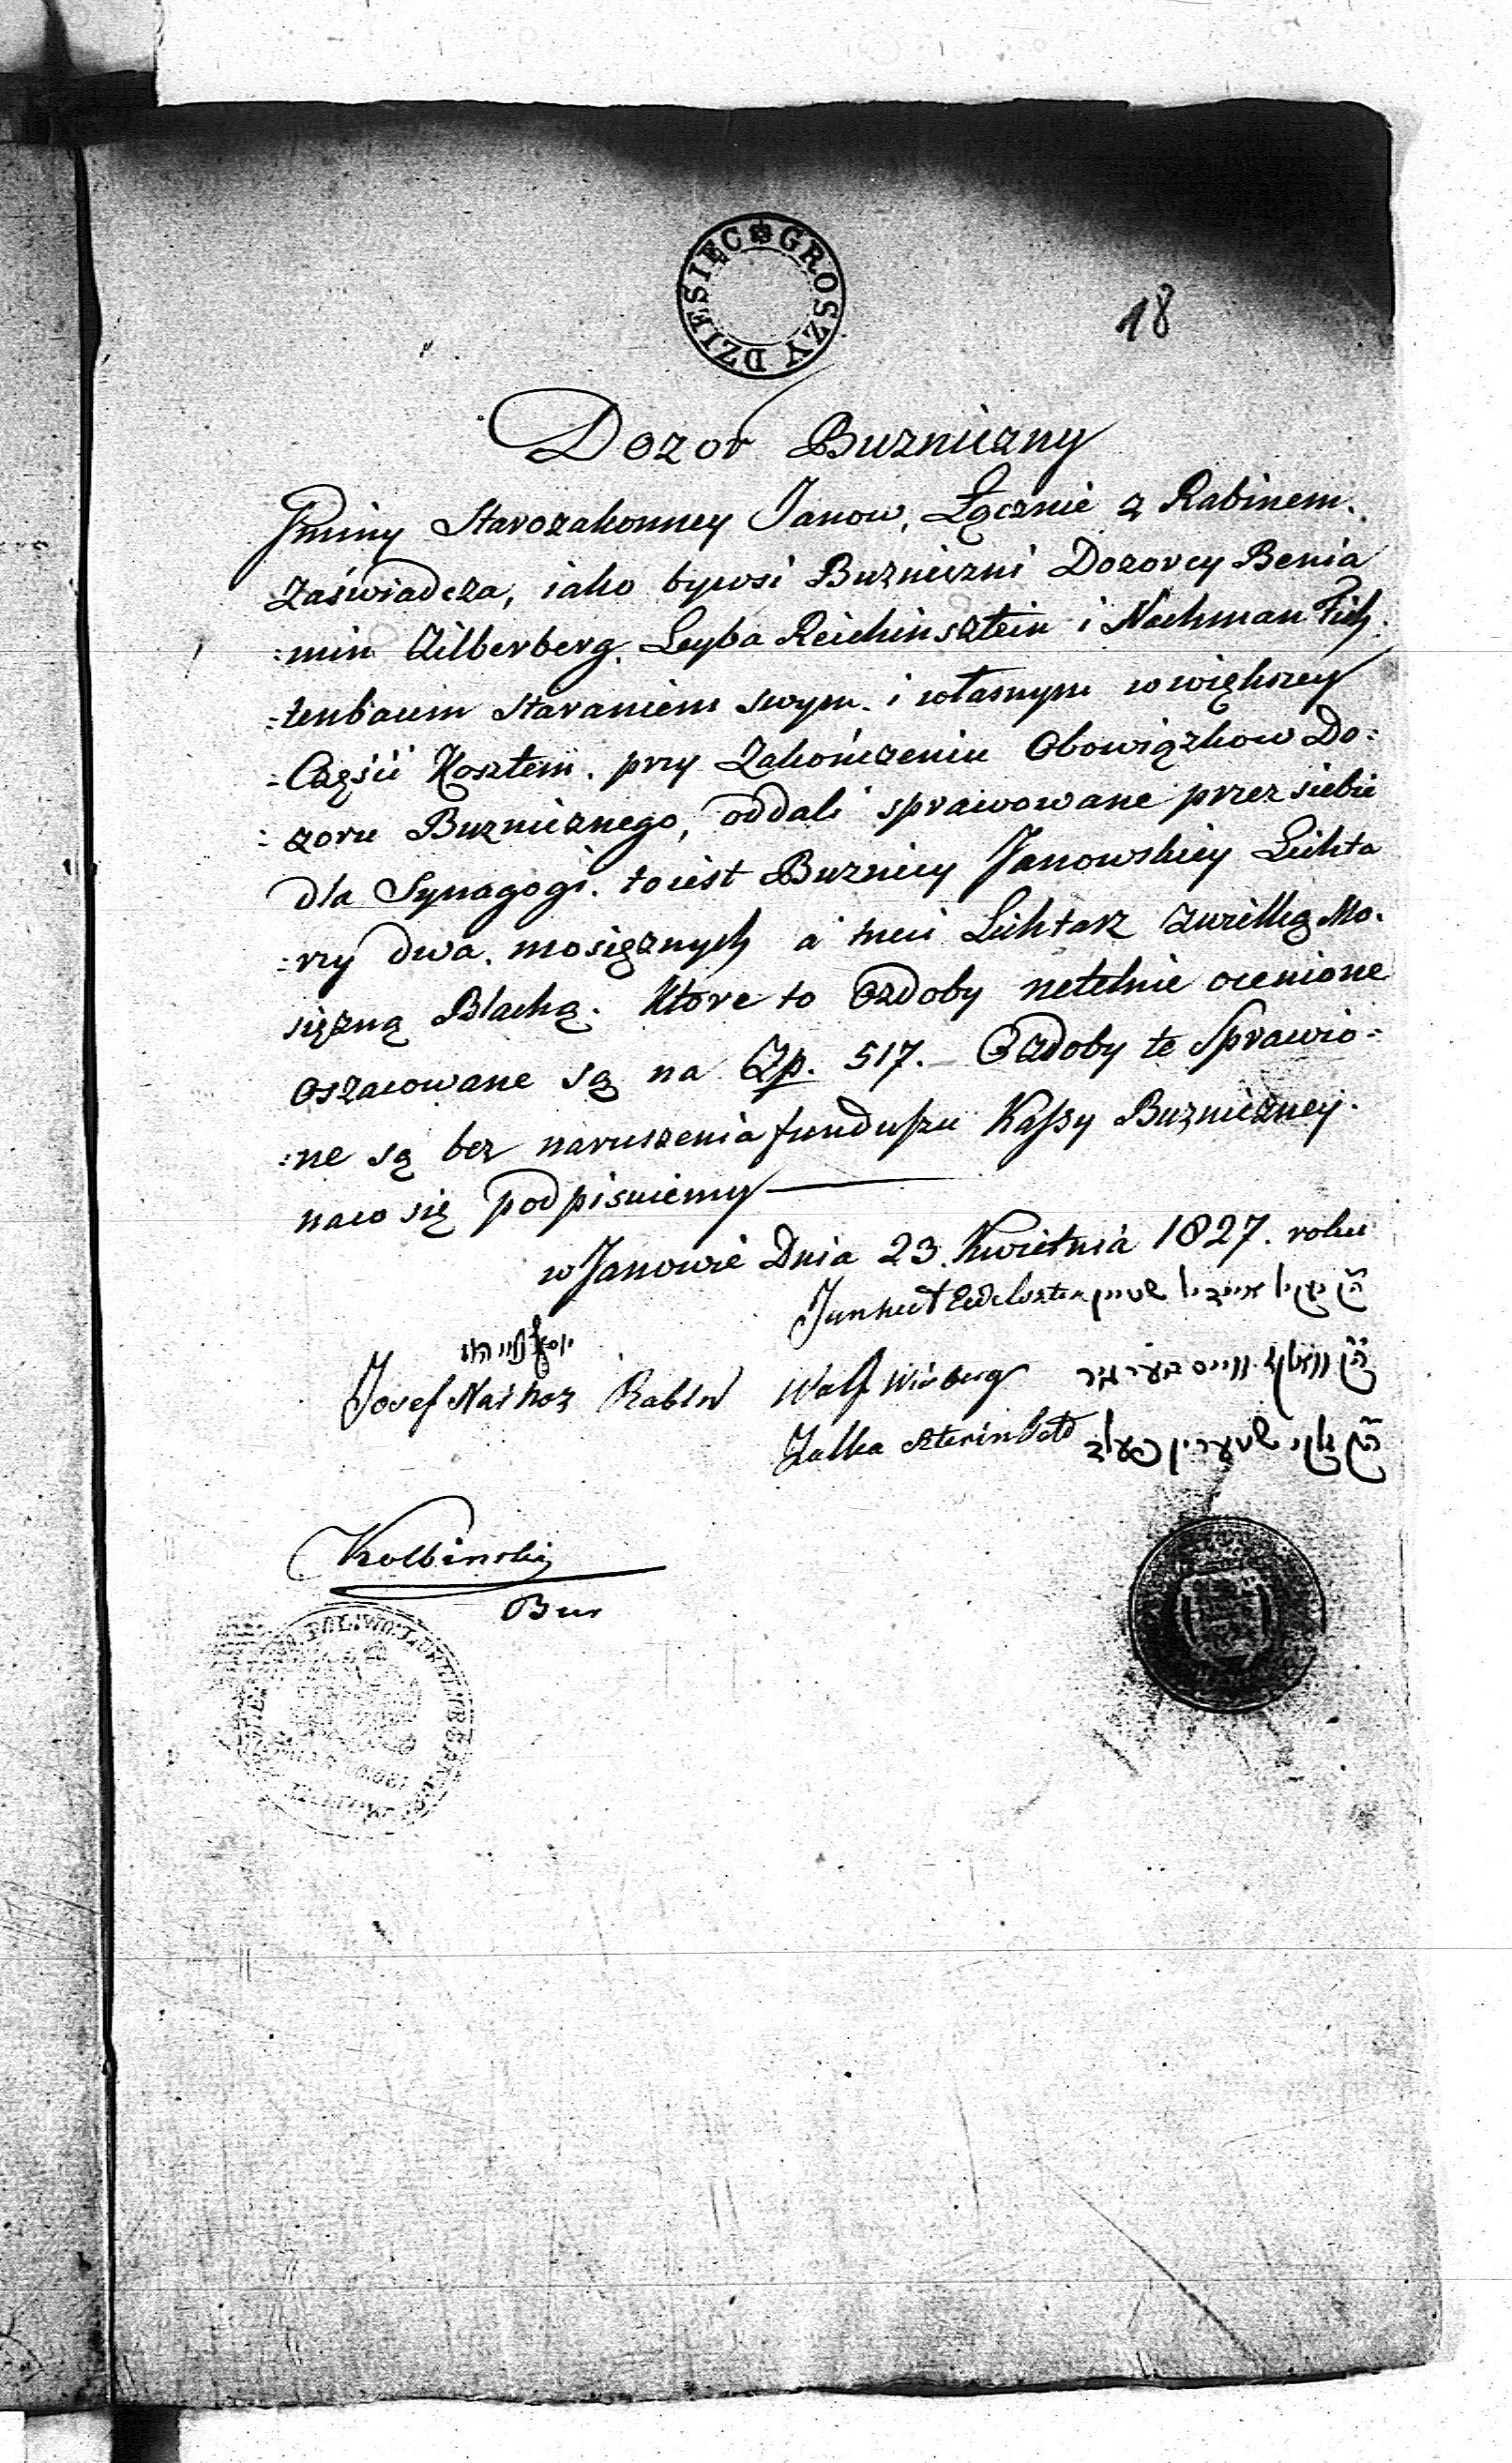 DZIESIĘC GROSZY
18
Dozor Buzniczny
Gminy Starozakonney Janow, Łącznie z Rabinem.
zaświadcza, iako bywsi Buzniczni Dozorcy Benia
=min Zilberberg. Leyba Reichinsztein i Nachman Fich
=tenbaum staraniem swym. i własnym w większey
=Części Kosztem. przy Zakończeniu Obowiązkow Do=
=zoru Buznicznego, oddali sprawowane przez siebie
dla Synagogi. to iest Buznicy Janowskiey Lichta
=rzy dwa. mosięznych a trzci Lichtarz z wielką Mo.
sięzną Blachą. Ktore to Ozdoby netelnie ocenione
oszacowane są na Zp. 517. Ozdoby te Sprawio=
=ne są bez naruszenia funduszu Kassy Buzniczney.
naco się podpisuiemy
w Janowie Dnia 23. Kwietnia 1827. roku
אייביל שטיין
Josef Naihoz Rabin Wolf Winberg
Zalka Szterinfeld
Kolbinski
Bur